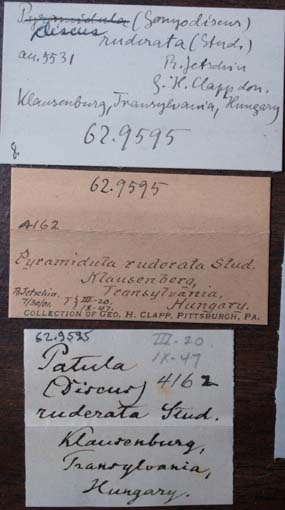 Pyramidula (Gonyodiscus)
Discus ruderata (Stud.)
au. 5531
R. Jetschin
G. H. Clapp don.
Klausenburg, Transylvania, Hungary
62.9595
g.
62.9595
A162
Pyramidula ruderata Stud.
Klausenberg,
Transylvania,
Hungary.
R. Jetschin.
7/30/01.
T } III-20.
IX-47.
COLLECTION OF GEO. H. CLAPP, PITTSBURGH, PA.
62.9595
III-20.
IX-47
Patula
(Discus) 4162
ruderata Stud.
Klausenburg,
Transylvania,
Hungary.